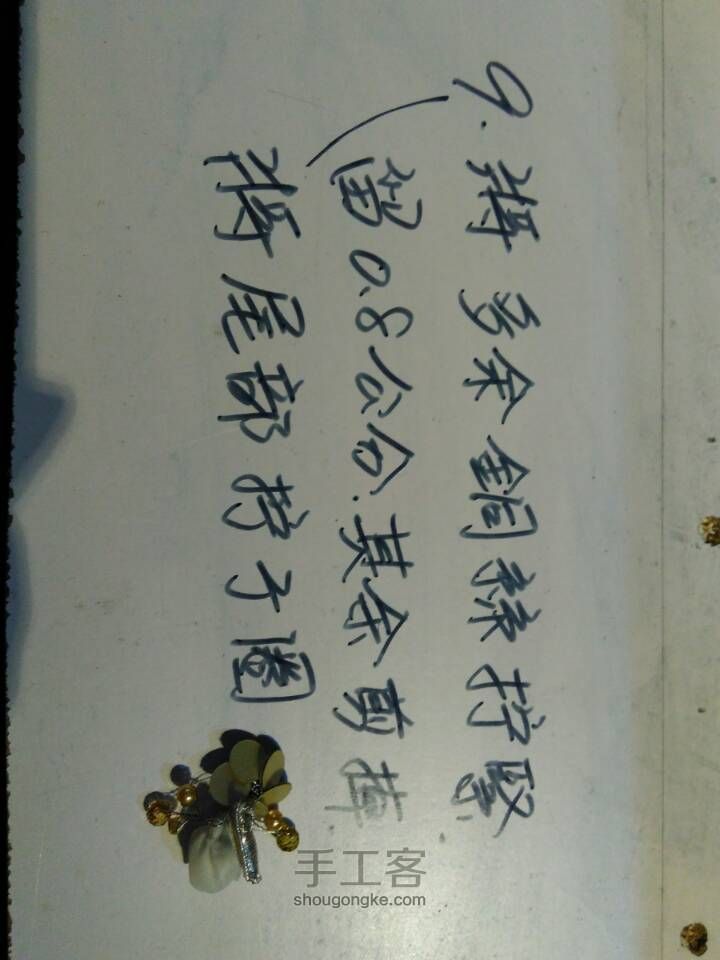 9. 將多余銅線拧緊
留0.8公分.其余剪掉
將尾部拧子圈
手工客
shougongke.com